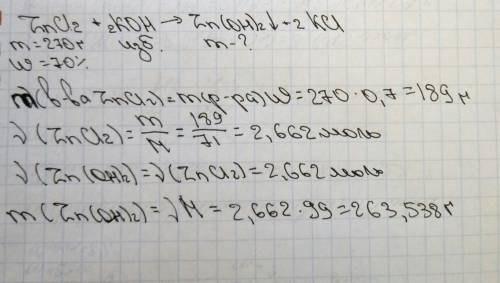 ZnCl₂ + 2KOH → Zn(OH)₂↓ + 2 KCl
m=270г изб. m-?
w=70%
m(в-ва ZnCl₂)=m(р-ра)w=270·0,7=189 г
ν(ZnCl₂)=m/M=189/71=2,662 моль
ν(Zn(OH)₂)=ν(ZnCl₂)=2,662 моль
m(Zn(OH)₂)=νM=2,662·99=263,538г